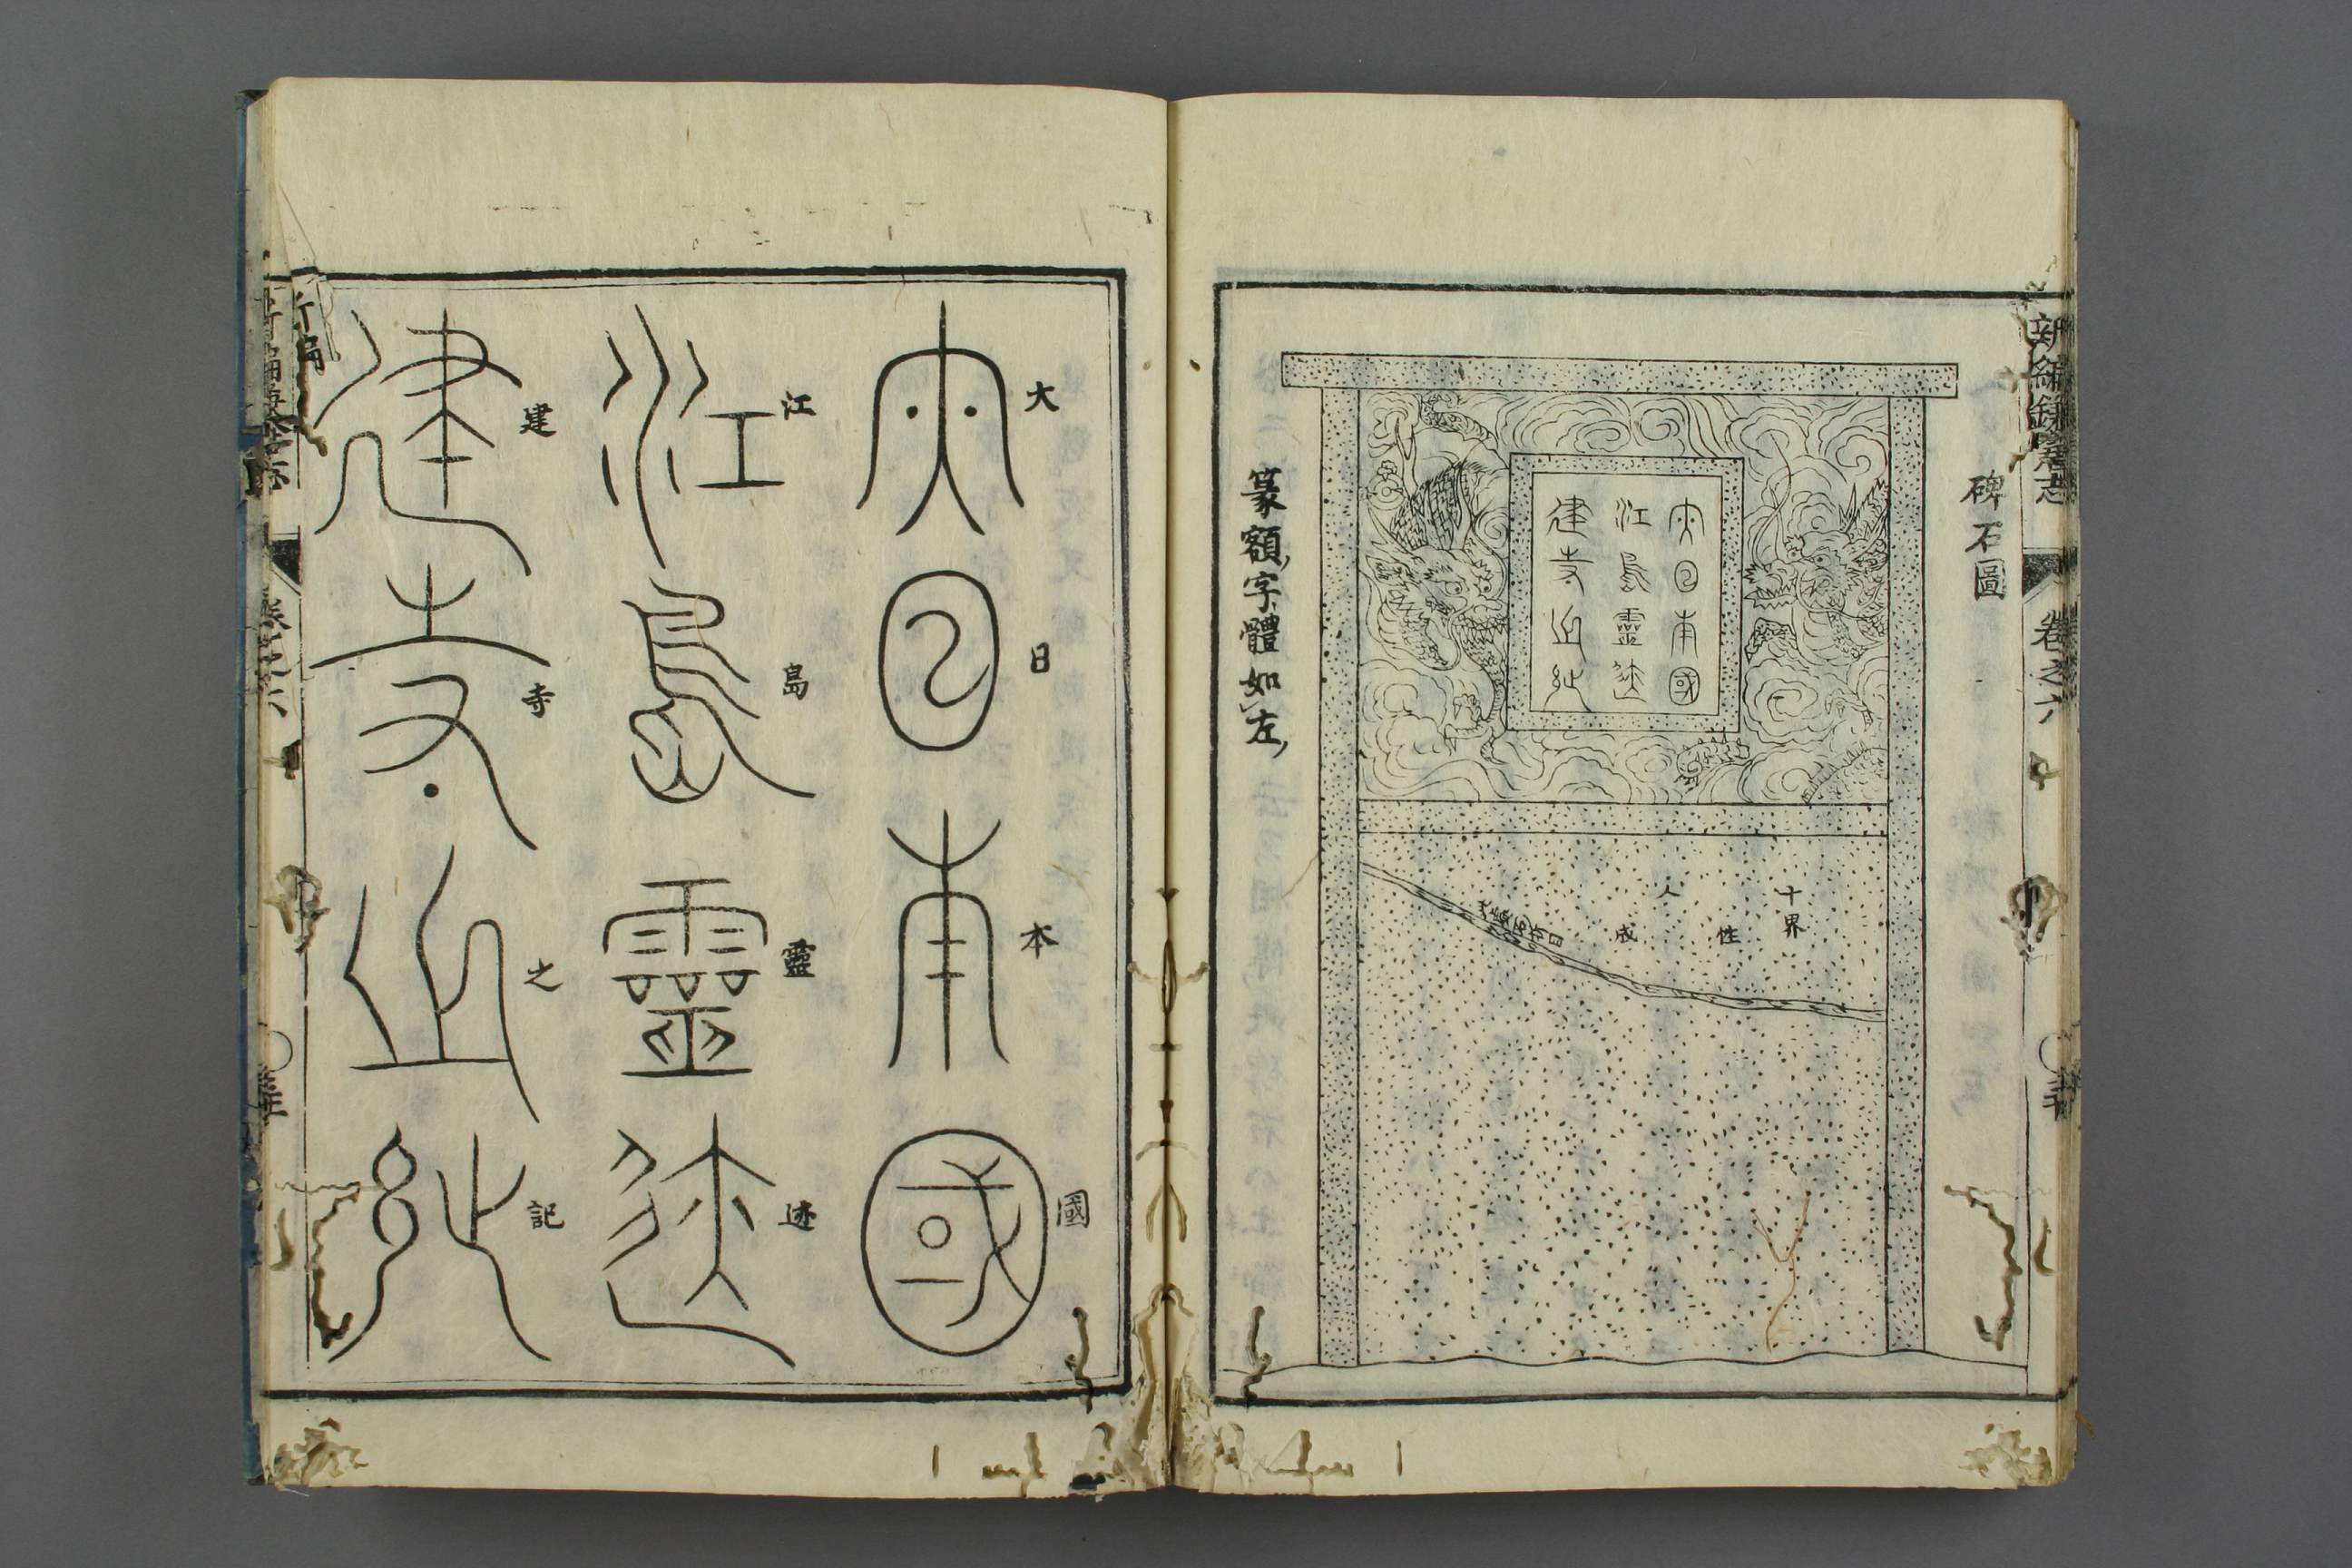 新編鎌倉志 卷之六
碑石圖
大日本國
江島靈迹
建寺之記
十界
性
人
成
篆額字體如左
大日本國
大日本國
江島靈迹
江島靈迹
建寺之記
建寺之記